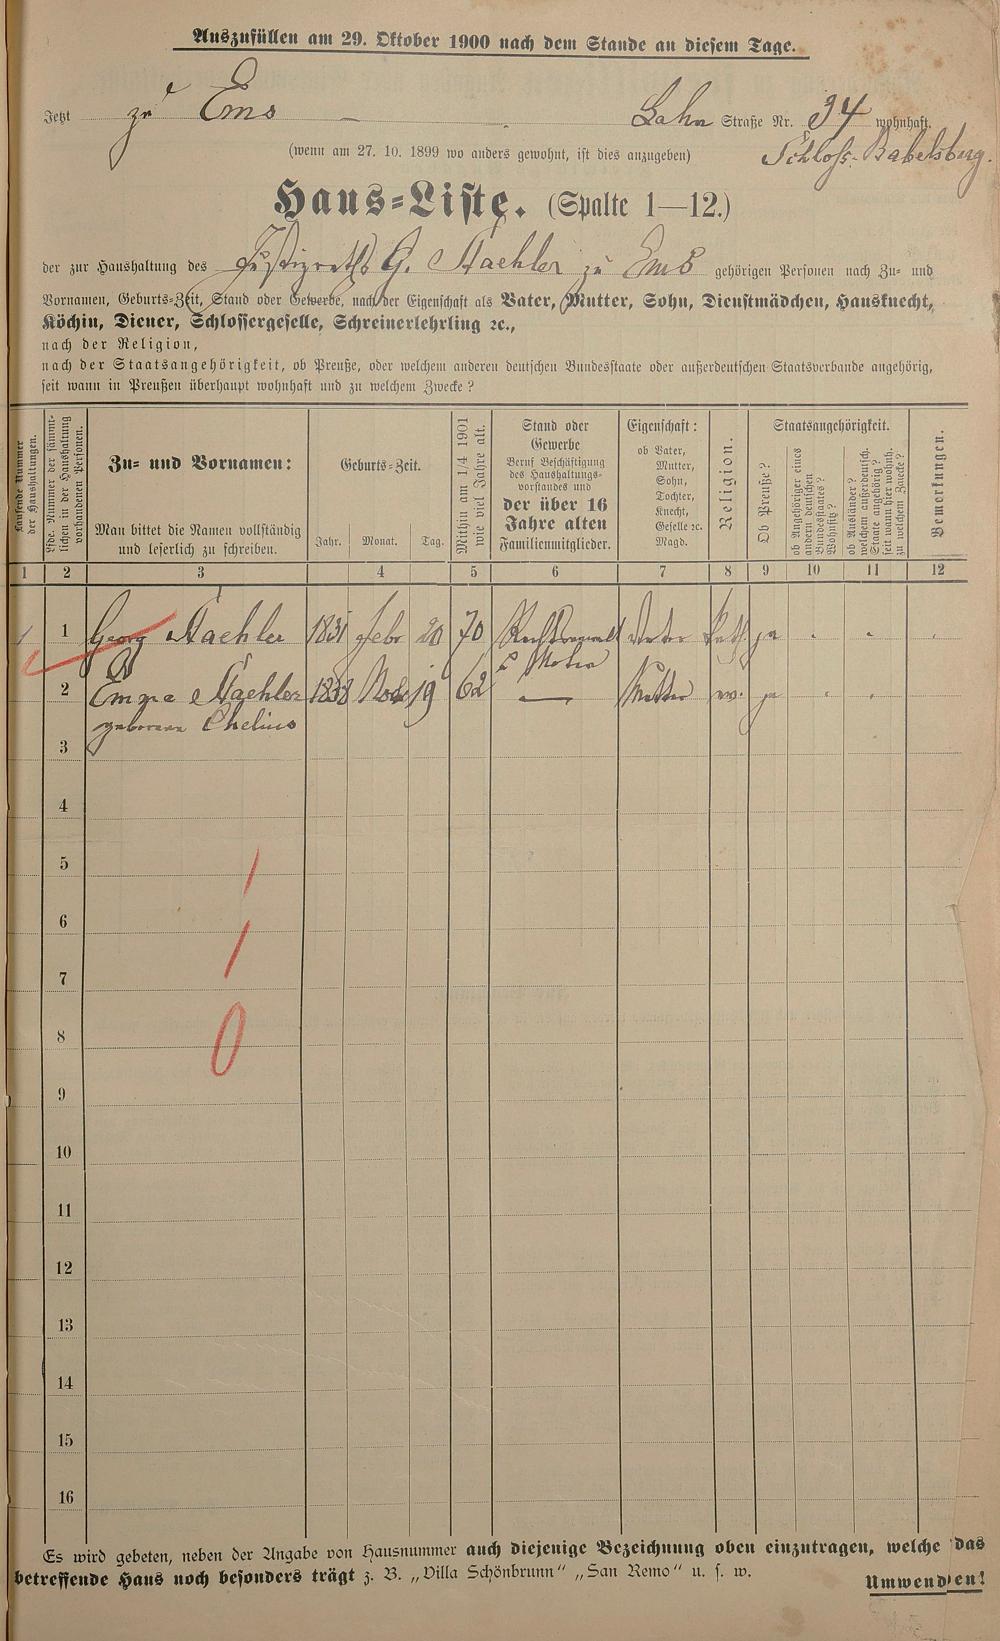 Auszufüllen am 29. Oktober 1900 nach dem Stande an diesem Tage.
Jetzt zu Ems — Lahn Straße Nr. 34 wohnhaft.
(wenn am 27. 10. 1899 wo anders gewohnt, ist dies anzugeben) Schloß-Babelsberg.
Haus-Liste. (Spalte 1—12.)
der zur Haushaltung des Justizraths G. Staehler zu Ems gehörigen Personen nach Zu- und
Vornamen, Geburts-Zeit, Stand oder Gewerbe, nach der Eigenschaft als Vater, Mutter, Sohn, Dienstmädchen, Hausknecht,
Köchin, Diener, Schlossergeselle, Schreinerlehrling ꝛc.,
nach der Religion,
nach der Staatsangehörigkeit, ob Preuße, oder welchem anderen deutschen Bundesstaate oder außerdeutschen Staatsverbande angehörig,
seit wann in Preußen überhaupt wohnhaft und zu welchem Zwecke?
Laufende Nummer
der Haushaltungen.
Lfde. Nummer der sämmt-
lichen in der Haushaltung
vorhandenen Personen.
Zu- und Vornamen:
Man bittet die Namen vollständig
und leserlich zu schreiben.
Geburts-Zeit.
Jahr. Monat. Tag.
Mithin am 1/4 1901
wie viel Jahre alt.
Stand oder
Gewerbe
Beruf Beschäftigung
des Haushaltungs-
vorstandes und
der über 16
Jahre alten
Familienmitglieder.
Eigenschaft:
ob Vater,
Mutter,
Sohn,
Tochter,
Knecht,
Geselle ꝛc.
Magd.
Religion.
Staatsangehörigkeit.
Ob Preuße?
ob Angehöriger eines
andern deutschen
Bundesstaates?
Wohnsitz?
ob Ausländer?
welchem außerdeutsch.
Staate angehörig?
seit wann hier wohnh.
zu welchem Zwecke?
Bemerkungen.
1 2 3 4 5 6 7 8 9 10 11 12
1 1 Georg Staehler 1831 Febr 20 70 Rechtsanwalt Vater kath. ja
& Notar
2 Emma Staehler 1838 Nov 19 62 — Mutter ev. ja
geborene Chelius
3
4
5
6
7
8
9
10
11
12
13
14
15
16
1
1
0
Es wird gebeten, neben der Angabe von Hausnummer auch diejenige Bezeichnung oben einzutragen, welche das
betreffende Haus noch besonders trägt z. B. „Villa Schönbrunn" „San Remo" u. s. w.
Umwenden!